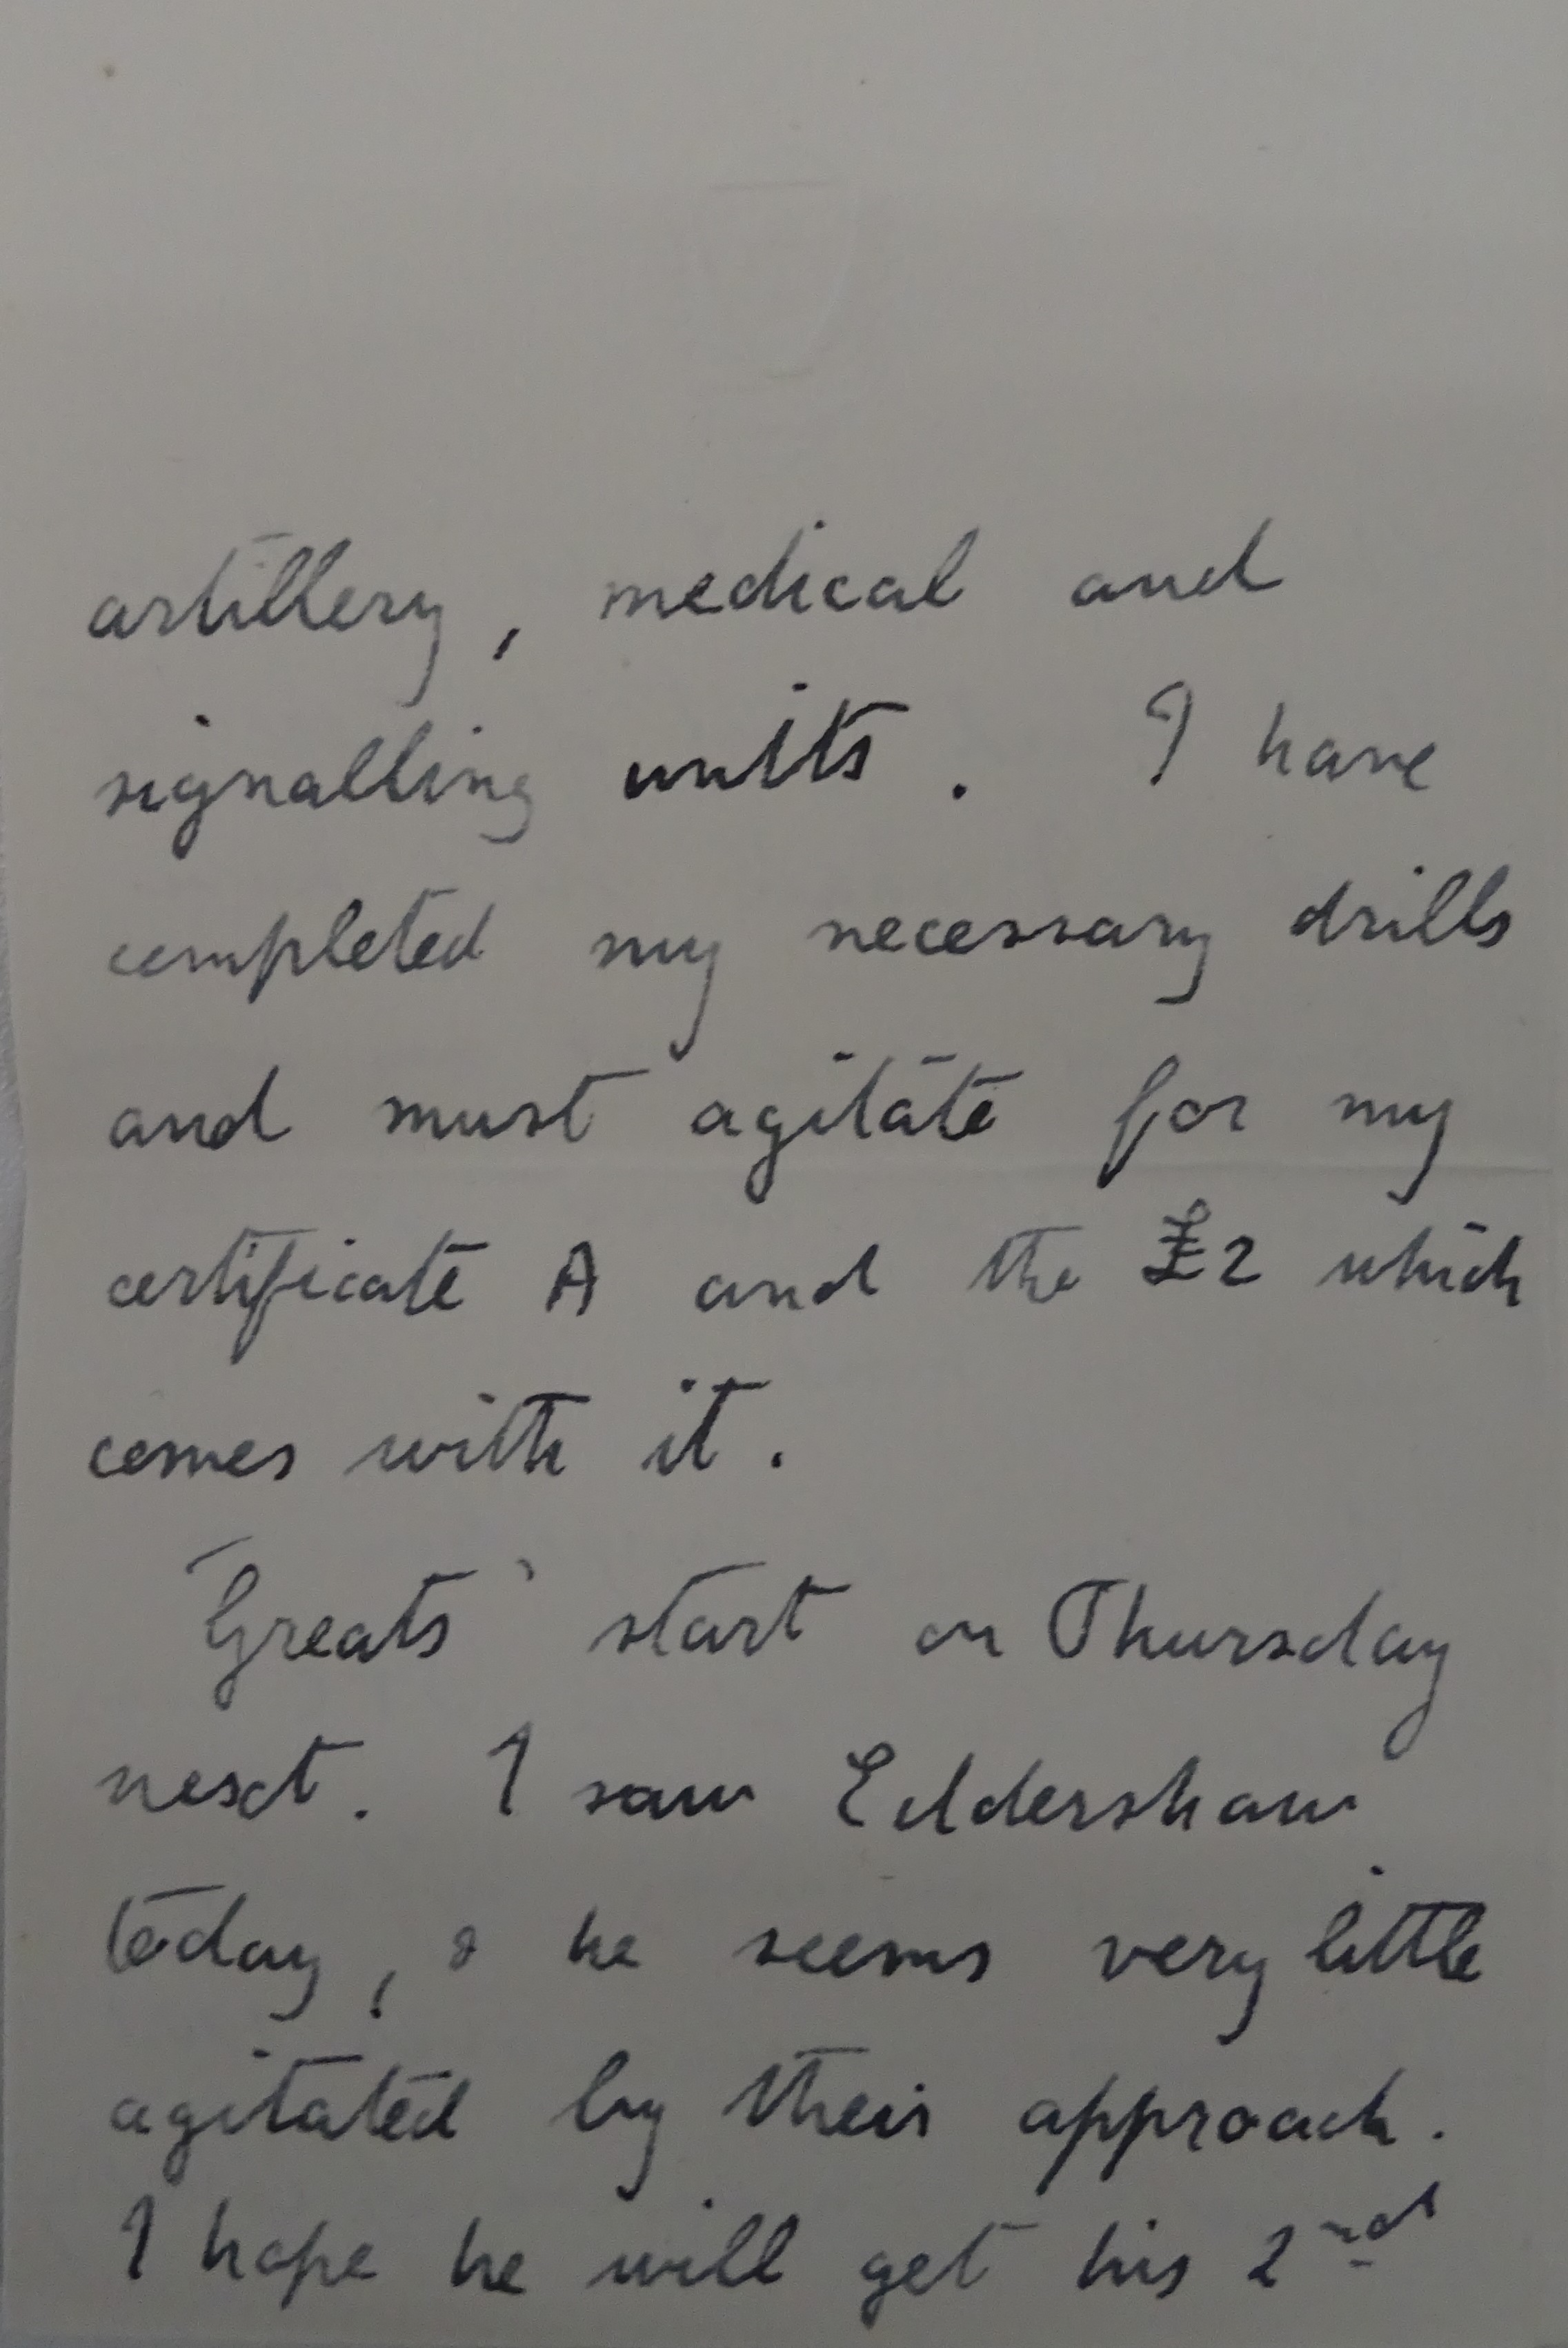 artillery, medical and
signalling units. I have
completed my necessary drills
and must agitate for my
certificate A and the £2 which
comes with it.
'Greats' start on Thursday
next. I saw Eldershaw
today, & he seems very little
agitated by their approach.
I hope he will get his 2nd